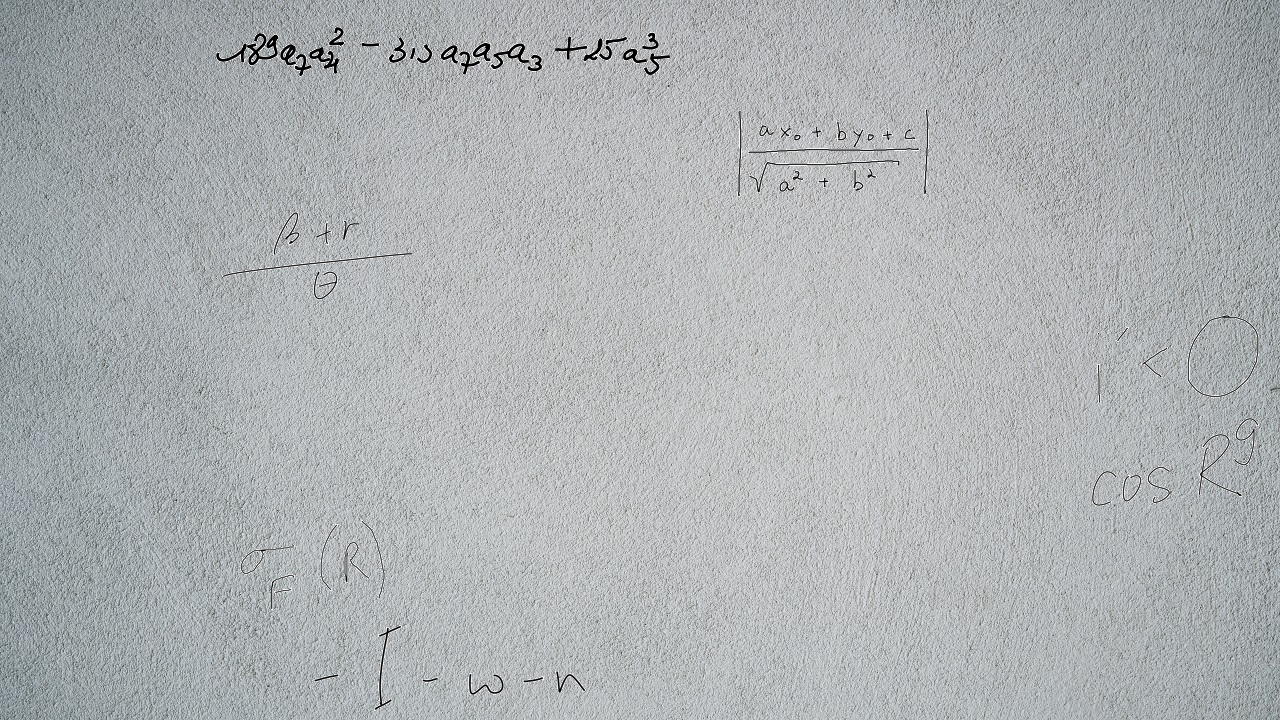 189a₇a₄² - 315a₇a₅a₃ + 25a₅³
|(ax₀ + by₀ + c)/√(a² + b²)|
(β + r)/θ
r < 0
cos R^g
σ_F(R)
- I - w - n